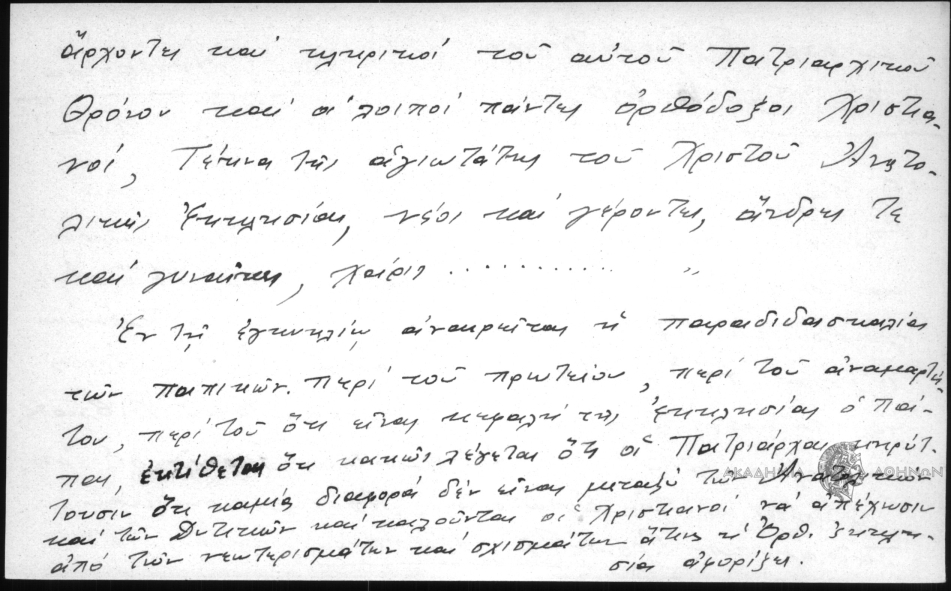 ἄρχοντες καί κληρικοί τοῦ αὐτοῦ Πατριαρχικοῦ
Θρόνου καί οἱ λοιποί πάντες ὀρθόδοξοι Χριστια-
νοί, Τέκνα τῆς ἁγιωτάτης τοῦ Χριστοῦ Ἀνατο-
λικῆς Ἐκκλησίας, νέοι καί γέροντες, ἄνδρες τε
καί γυναῖκες, χάρις ........... "
Ἐν τῇ ἐγκυκλίῳ ἀναιρεῖται ἡ παραδιδασκαλία
τῶν παπικῶν. περί τοῦ πρωτείου, περί τοῦ ἀναμαρτή-
του, περί τοῦ ὅτι εἶναι κεφαλή τῆς Ἐκκλησίας ὁ Πά-
πας, ἐκτίθεται ὅτι κακῶς λέγεται ὅτι οἱ Πατριάρχαι κηρύτ-
τουσιν ὅτι καμία διαφορά δέν εἶναι μεταξύ τῶν Ἀνατολικῶν
καί τῶν Δυτικῶν καί καλοῦνται οἱ Χριστιανοί νά ἀπέχωσιν
ἀπό τῶν νεωτερισμάτων καί σχισμάτων ἅτινα ἡ Ὀρθ. Ἐκκλη-
σία ἀφορίζει.
ΑΚΑΔΗΜΙΑ ΑΘΗΝΩΝ